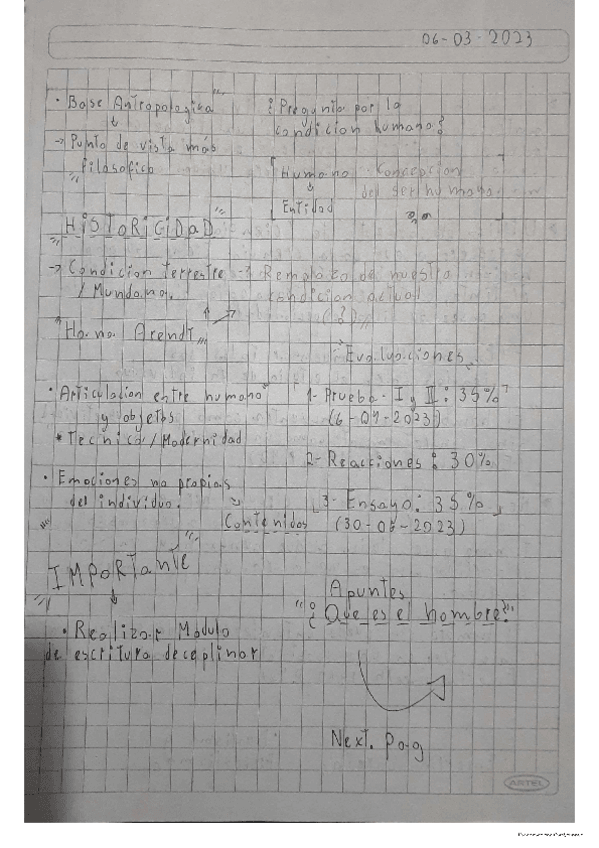 06-03-2023
• Base Antropologica
→ Punto de vista más
filosofico
¿Pregunta por la
condicion humana?
Humano Concepcion
del ser humano.
Entidad
HiSTORiCiDaD
→ Condicion terrestre
/ Mundana.
→ Remplazo de nuestra
condicion actual
(?)
Hanna Arendt
• Articulacion entre humano
y objetos
* Tecnica/Modernidad
• Emociones no propias
del individuo.
Contenidos
Evaluaciones
1- Prueba I y II: 35%
(6-04-2023)
2- Reacciones: 30%
3- Ensayo: 35%
(30-06-2023)
IMPORtante
• Realizar Modulo
de escritura deceplinar
Apuntes
"¿Que es el hombre?"
Next. Pag
ARTEL